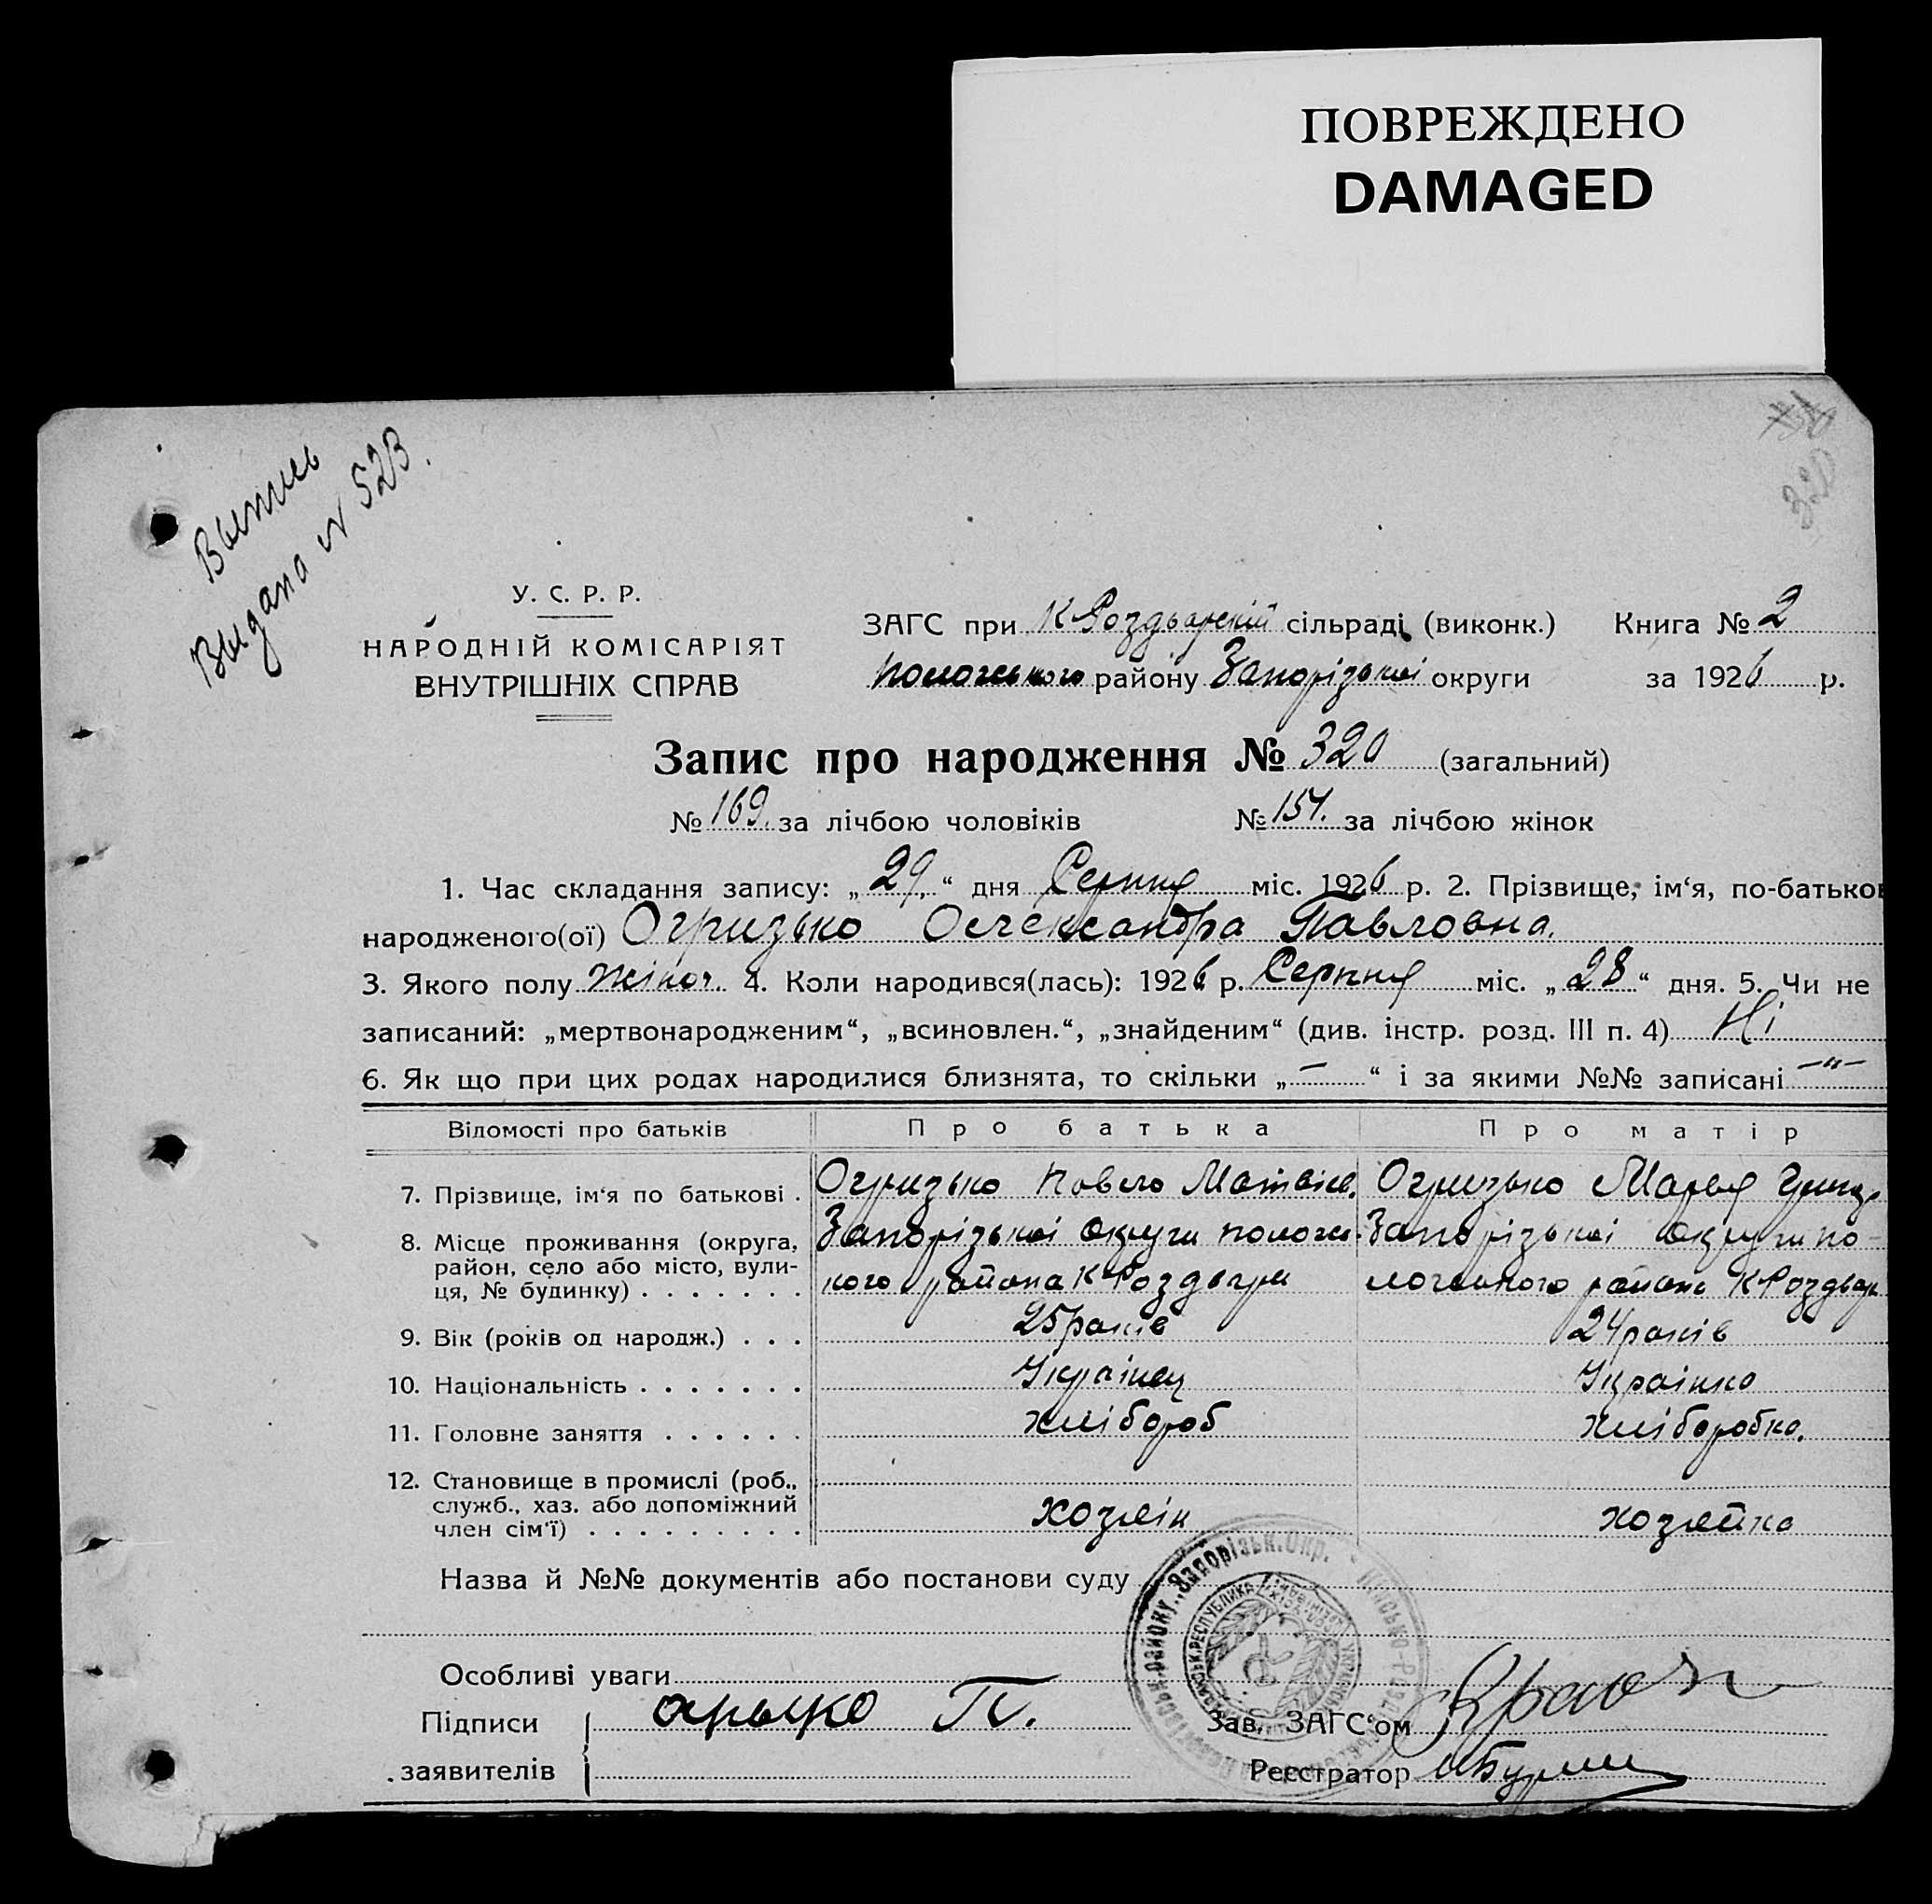 ПОВРЕЖДЕНО
DAMAGED
320
Выпись
Выдана N 523.
У. С. Р. Р.
НАРОДНІЙ КОМІСАРІЯТ
ВНУТРІШНІХ СПРАВ
ЗАГС при К Роздорській сільраді (виконк.) Книга № 2
Пологського району Запорізької округи за 1926 р.
Запис про народження № 320 (загальний)
№ 169. за лічбою чоловіків № 151. за лічбою жінок
1. Час складання запису: „29“ дня Серпня міс. 1926 р. 2. Прізвище, ім‘я, по-батьков
народженого(ої) Огризько Олександра Павловна.
3. Якого полу жіноч. 4. Коли народився(лась): 1926 р. Серпня міс. „28“ дня. 5. Чи не
записаний: „мертвонародженим“, „всиновлен.“, „знайденим“ (див. інстр. розд. III п. 4) Ні
6. Як що при цих родах народилися близнята, то скільки „—“ і за якими №№ записані —"—
Відомості про батьків Про батька Про матір
7. Прізвище, ім‘я по батькові . Огризько Павло Матвієв. Огризько Марья Гриц.
8. Місце проживання (округа, Запорізької округи Пологс- Запорізької округи По-
район, село або місто, вули- кого района К Роздори логського района К Роздор
ця, № будинку) . . . . . . .
9. Вік (років од народж.) . . . 25 років 24 років
10. Національність . . . . . . . Українец Українка
11. Головне заняття . . . . . . хлібороб хліборобка.
12. Становище в промислі (роб.,
служб., хаз. або допоміжний хозяін хозяйка
член сім‘ї) . . . . . . . . .
Назва й №№ документів або постанови суду
Особливі уваги
Підписи П. Зав. ЗАГС‘ом
заявителів Реєстратор